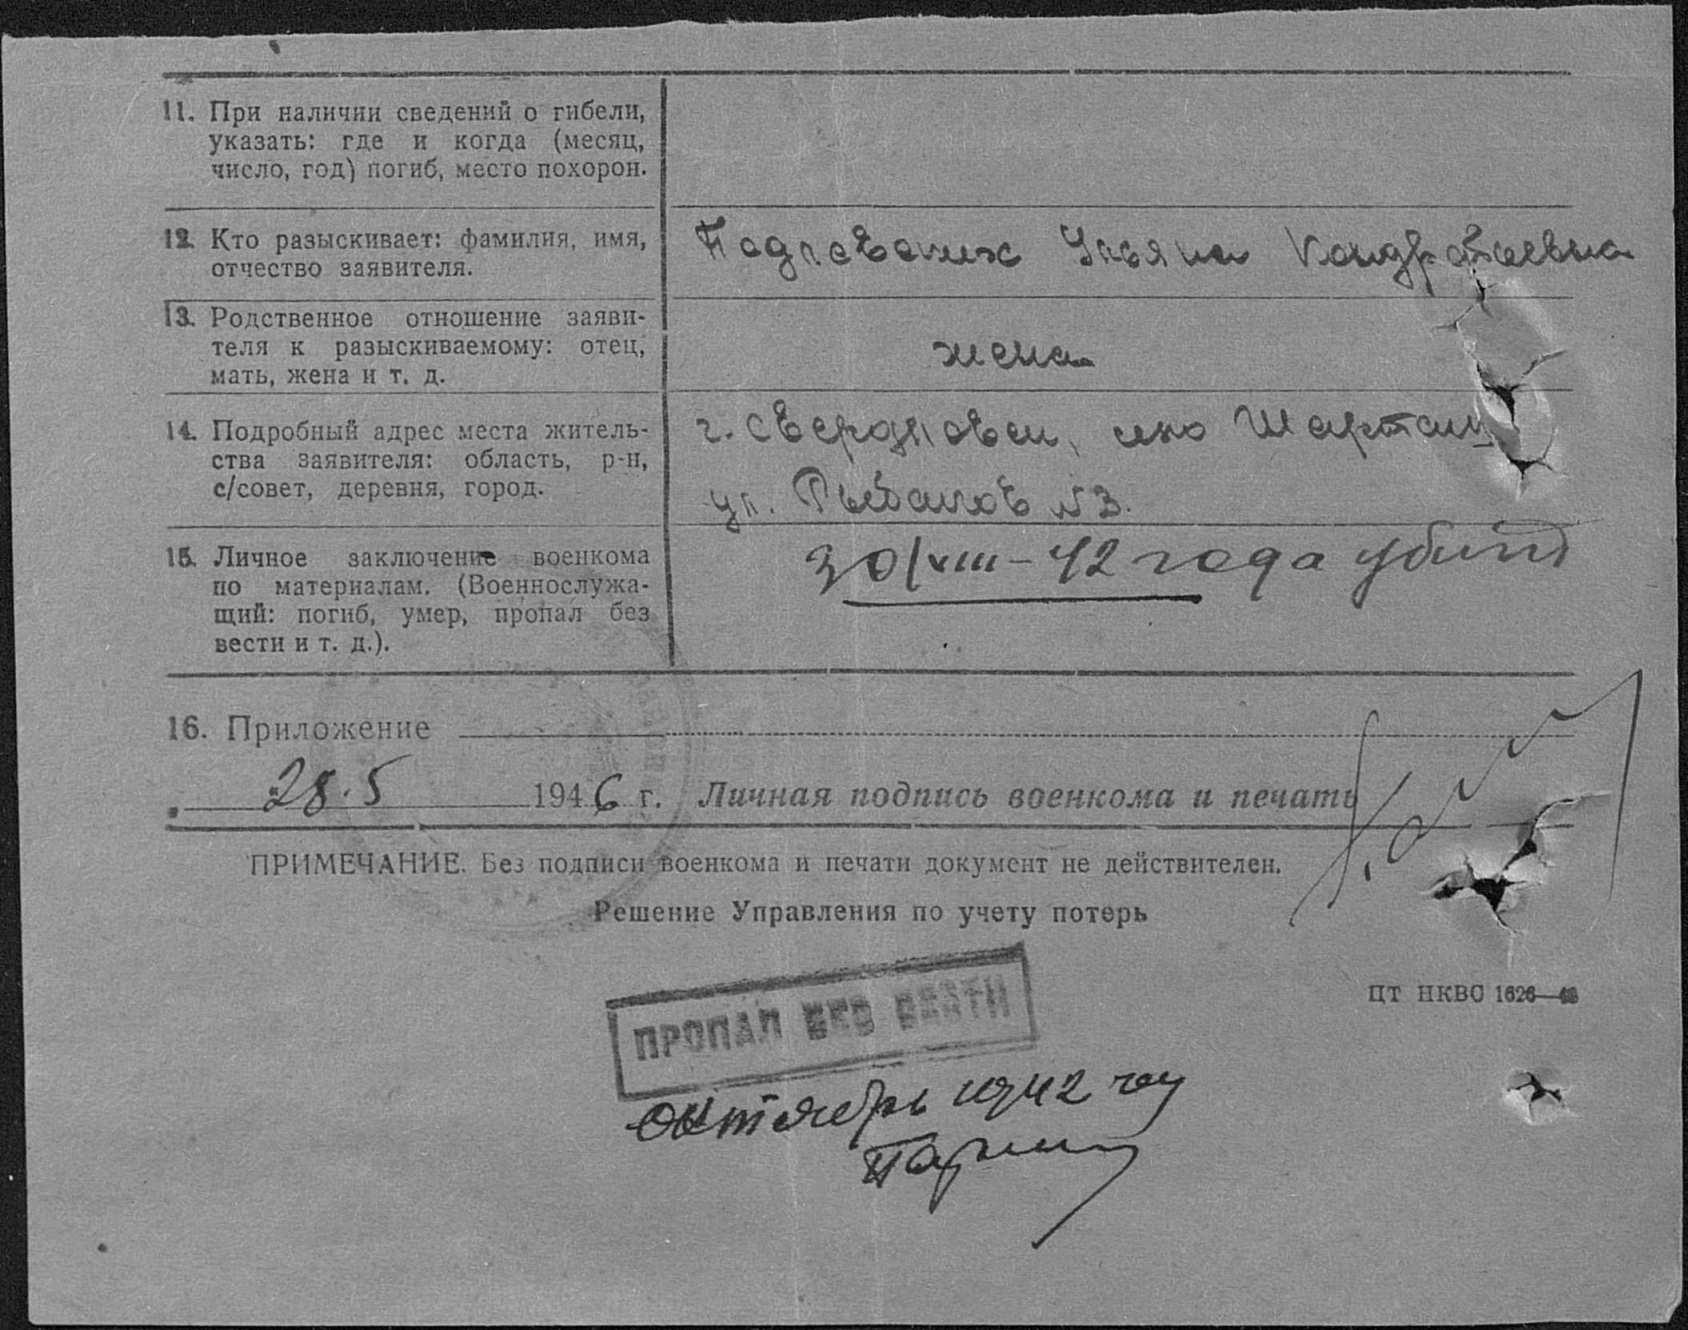 11. При наличии сведений о гибели,
указать: где и когда (месяц,
число, год) погиб, место похорон.
12. Кто разыскивает: фамилия, имя,
отчество заявителя.
Ульяна Кондратьевна
13. Родственное отношение заяви-
теля к разыскиваемому: отец,
мать, жена и т. д.
жена
14. Подробный адрес места житель-
ства заявителя: область, р-н,
с/совет, деревня, город.
г. Свердловск, Шарташ
ул. Рыбаков № 3.
15. Личное заключение военкома
по материалам. (Военнослужа-
щий: погиб, умер, пропал без
вести и т. д.).
30/VIII-42 года убит
16. Приложение
28.5 1946 г. Личная подпись военкома и печать
ПРИМЕЧАНИЕ. Без подписи военкома и печати документ не действителен.
Решение Управления по учету потерь
ЦТ НКВО 1626—
ПРОПАЛ БЕЗ ВЕСТИ
октябрь 1942